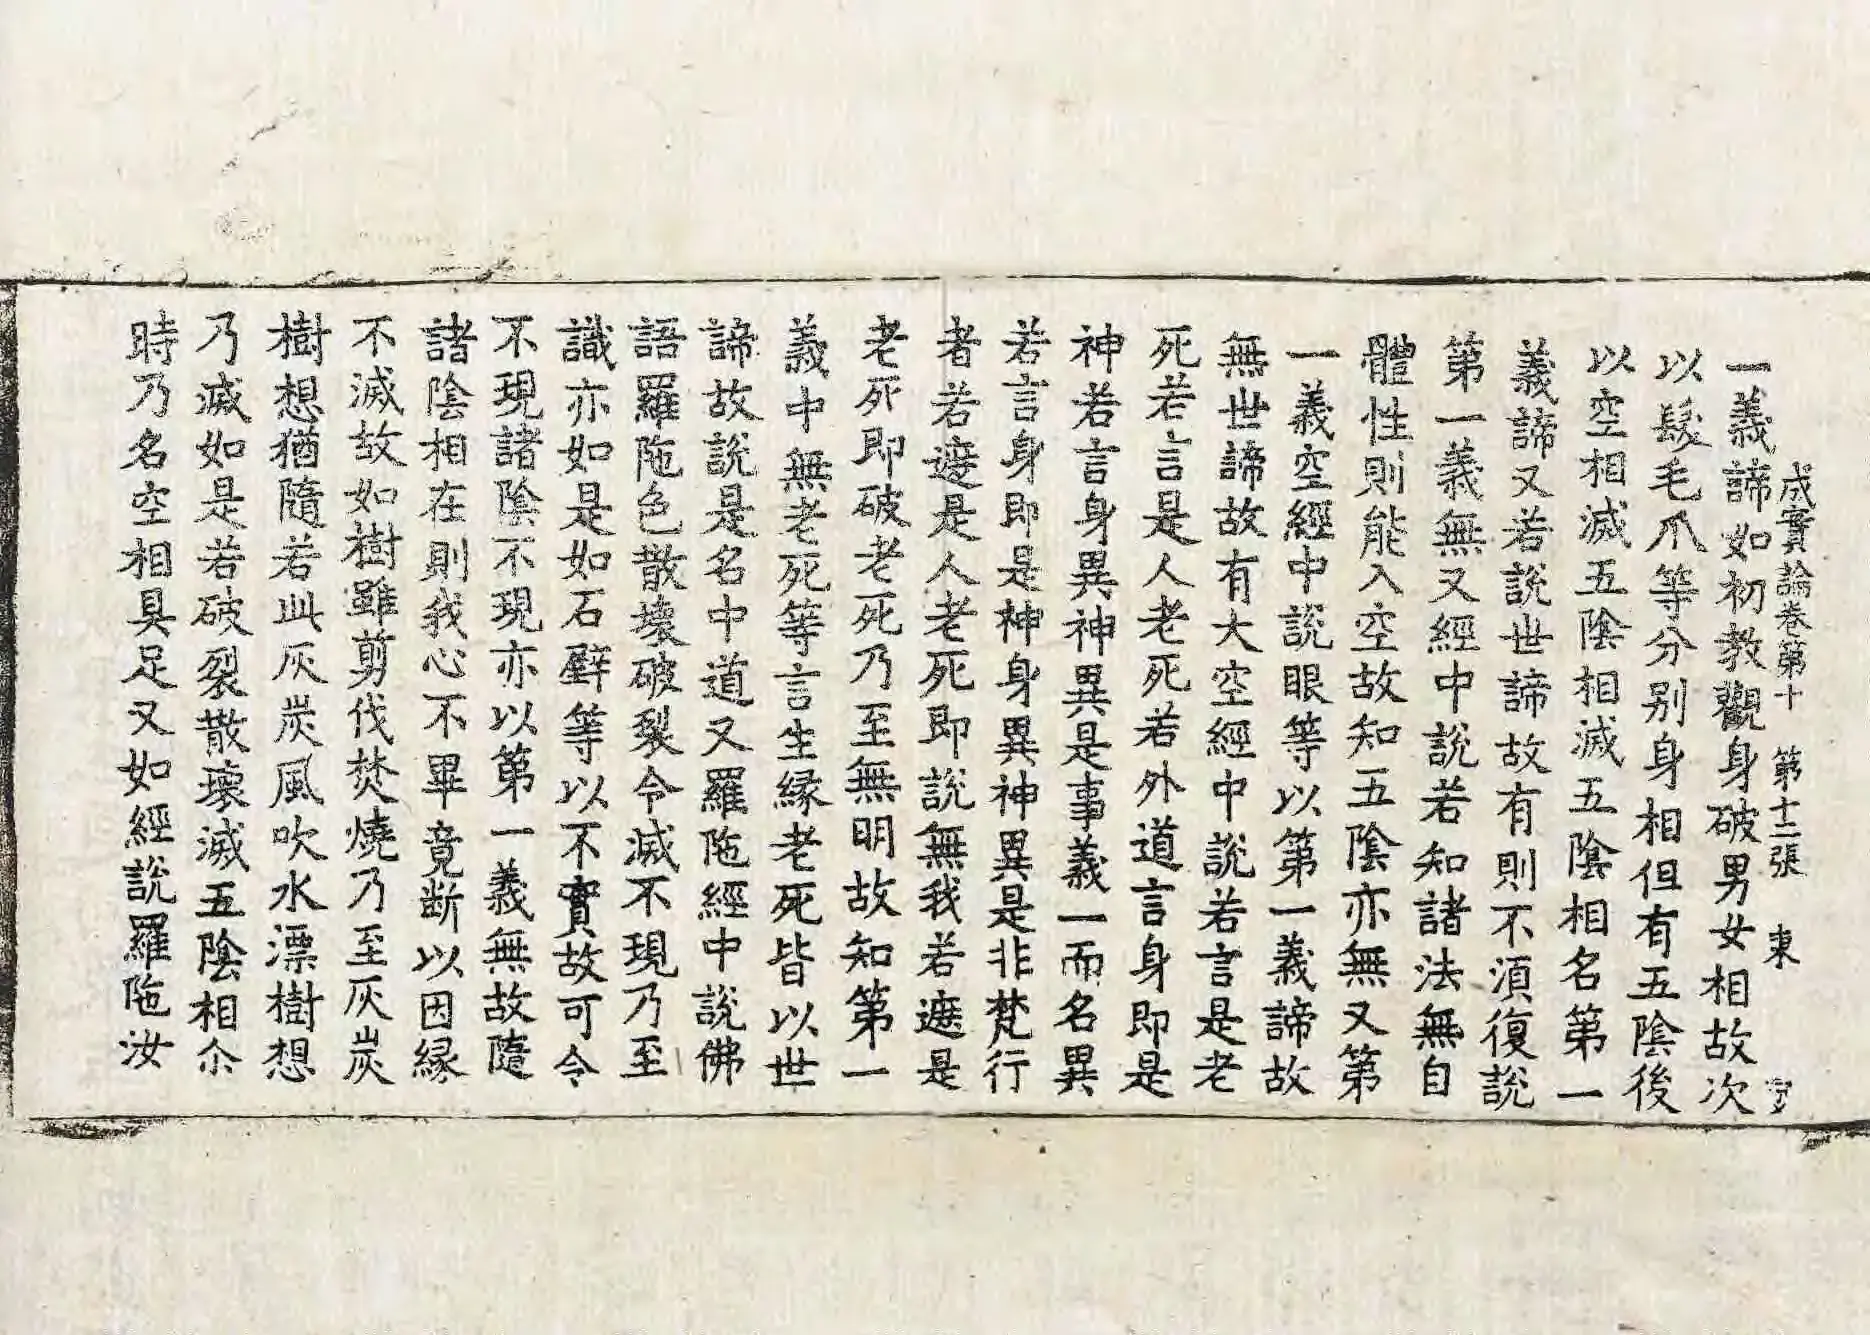 成實論卷第十 第十二張 東
一義諦如初教觀身破男女相故次
以髮毛爪等分別身相但有五陰後
以空相滅五陰相滅五陰相名第一
義諦又若說世諦故有則不須復說
第一義無又經中說若知諸法無自
體性則能入空故知五陰亦無又第
一義空經中說眼等以第一義諦故
無世諦故有大空經中說若言是老
死若言是人老死若外道言身即是
神若言身異神異是事義一而名異
若言身即是神身異神異是非梵行
者若遮是人老死即說無我若遮是
老死即破老死乃至無明故知第一
義中無老死等言生緣老死皆以世
諦故說是名中道又羅陁經中說佛
語羅陁色散壞破裂令滅不現乃至
識亦如是如石壁等以不實故可令
不現諸陰不現亦以第一義無故隨
諸陰相在則我心不畢竟斷以因緣
不滅故如樹雖剪伐焚燒乃至灰炭
樹想猶隨若此灰炭風吹水漂樹想
乃滅如是若破裂散壞滅五陰相尒
時乃名空相具足又如經說羅陁汝